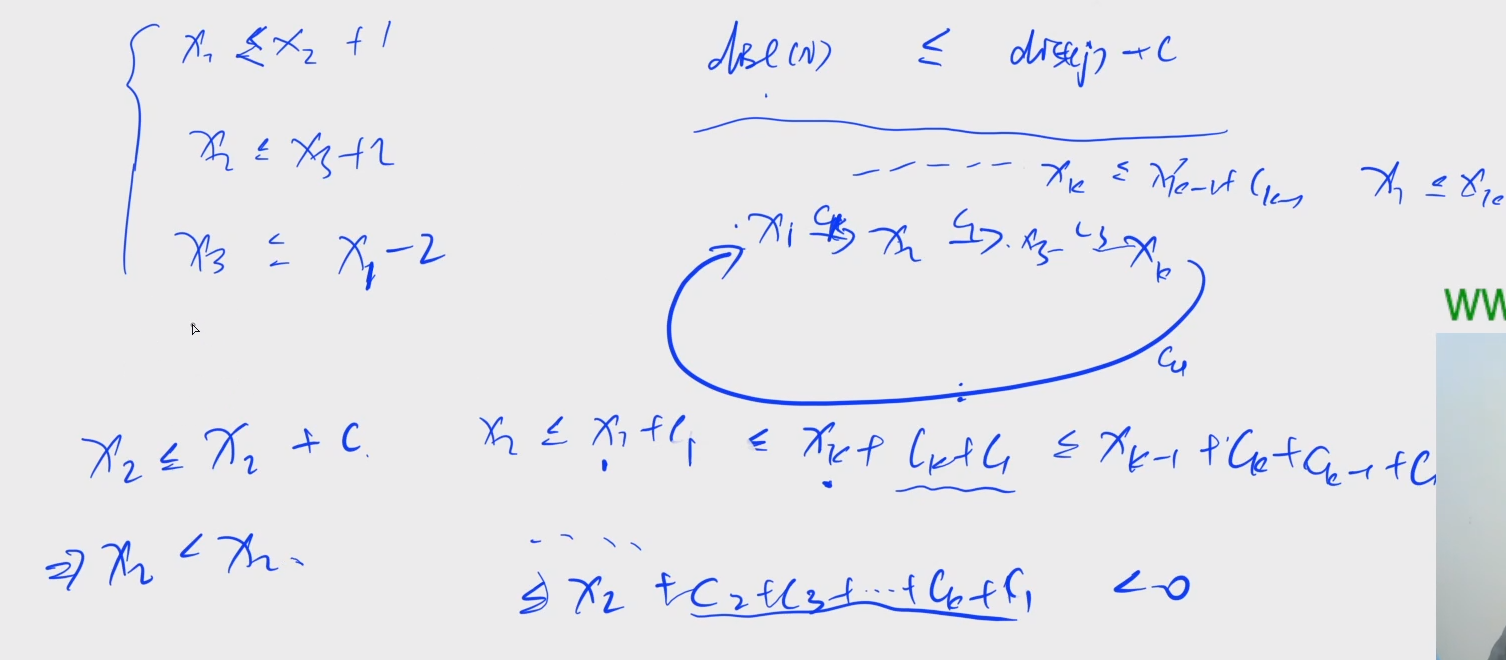 x₁ ≤ x₂ + 1
x₂ ≤ x₃ + 2
x₃ ≤ x₁ - 2
≤ dist(j) + C
x_k ≤ x_{k-1} + C_{k-1}
x₁ x₂ x₃ C₃ x_k
x₂ ≤ x₂ + C.
x₂ ≤ x₁ + C₁ ≤ x_k + C_k + C₁ ≤ x_{k-1} + C_k + C_{k-1} + C
⇒ x₂ < x₂
≤ x₂ + C₂ + C₃ + ... + C_k + C₁ < 0
WW